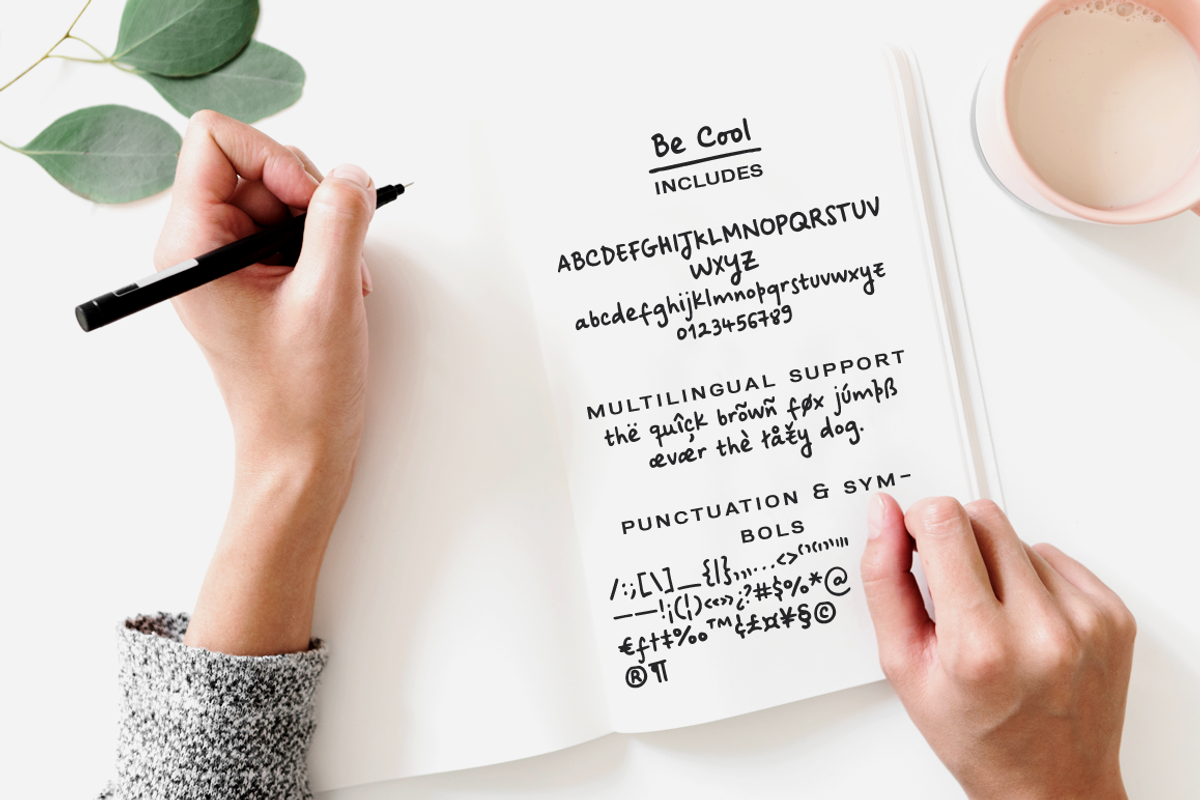 Be Cool
INCLUDES
ABCDEFGHIJKLMNOPQRSTUV
WXYZ
abcdefghijklmnopqrstuvwxyz
0123456789
MULTILINGUAL SUPPORT
thë quîçk brõwñ føx júmþß
ævær thè łåžy dog.
PUNCTUATION & SYM-
BOLS
/:;[\]_{|}
——!¡(¦)«»¿?#$%*@
€ƒ†‡‰™¢£¤¥§©
®¶